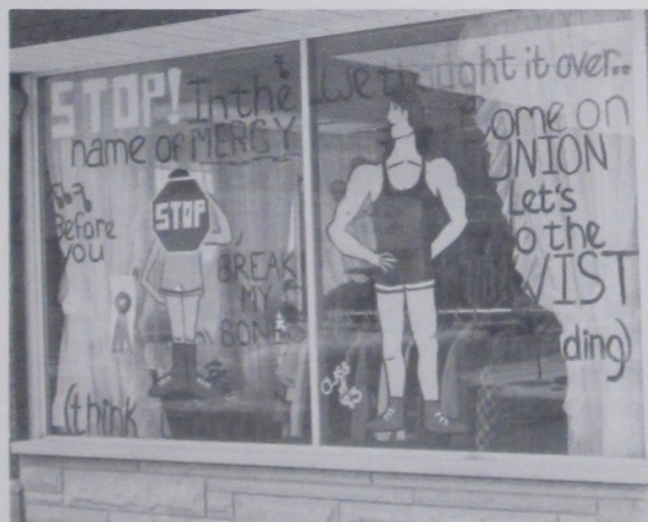 STOP! In the
name of MERCY
Before
you
STOP
BREAK
MY
BONES
(think
We thought it over..
Come on
UNION
Let's
o the
WIST
ding)
Class
of
93